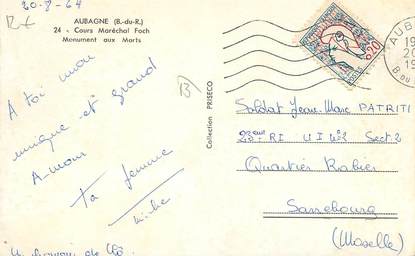 20-8-64
AUBAGNE (B.-du-R.)
24 - Cours Maréchal Foch
Monument aux Morts
A toi mon
unique et grand
Amour
ta femme
Collection PRISECO
0,20
AUBA
19
20
19
B DU
Soldat Jean-Marc PATRITI
23ème RI U I N°2 Sect. 2
Quartier Rabier
Sarrebourg
(Moselle)